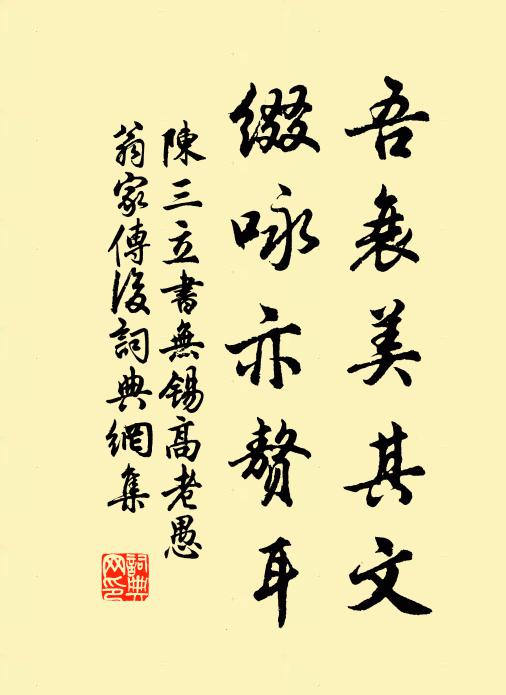 吾衰美其文
綴咏亦贅耳
陳三立書無錫高老愚
翁家傳後詞典網集
詞典网印